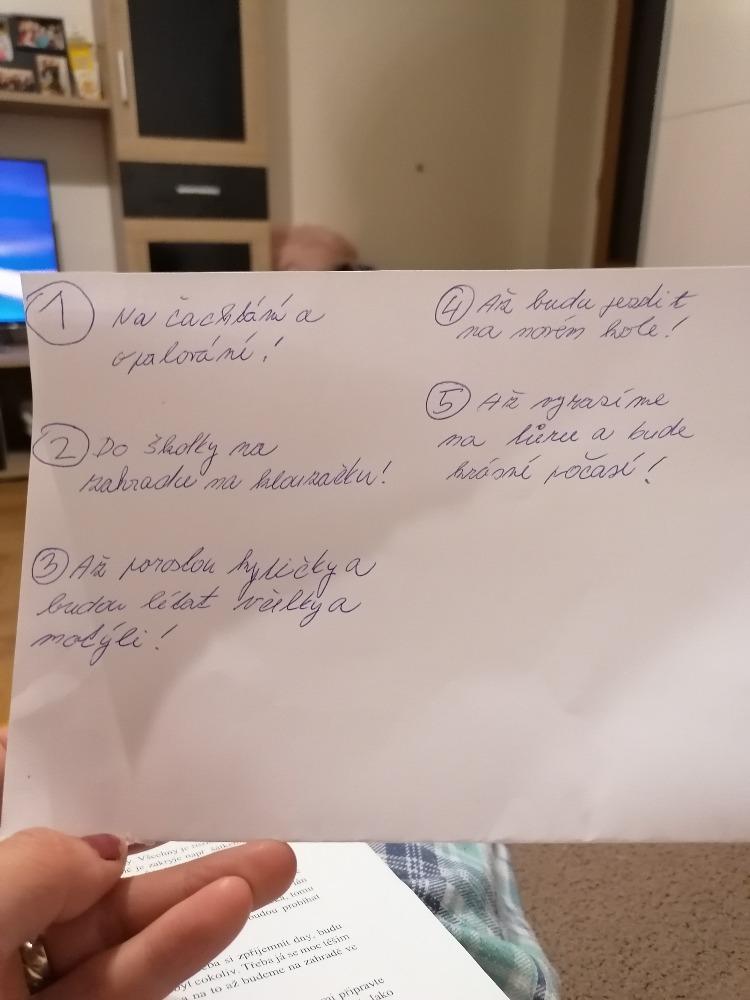 1 Na čachtání a
opalování!
2 Do školky na
zahradu na klouzačku!
3 Až porostou kytičky a
budou létat včelky a
motýli!
4 Až budu jezdit
na novém kole!
5 Až vyrazíme
na túru a bude
krásné počasí!
y. Všechny je
je zakryje např.
tomu
budou probíhat
si zpříjemnit dny, budu
cokoliv. Třeba já se moc těším
a na to až budeme na zahradě ve
připravte
Jako